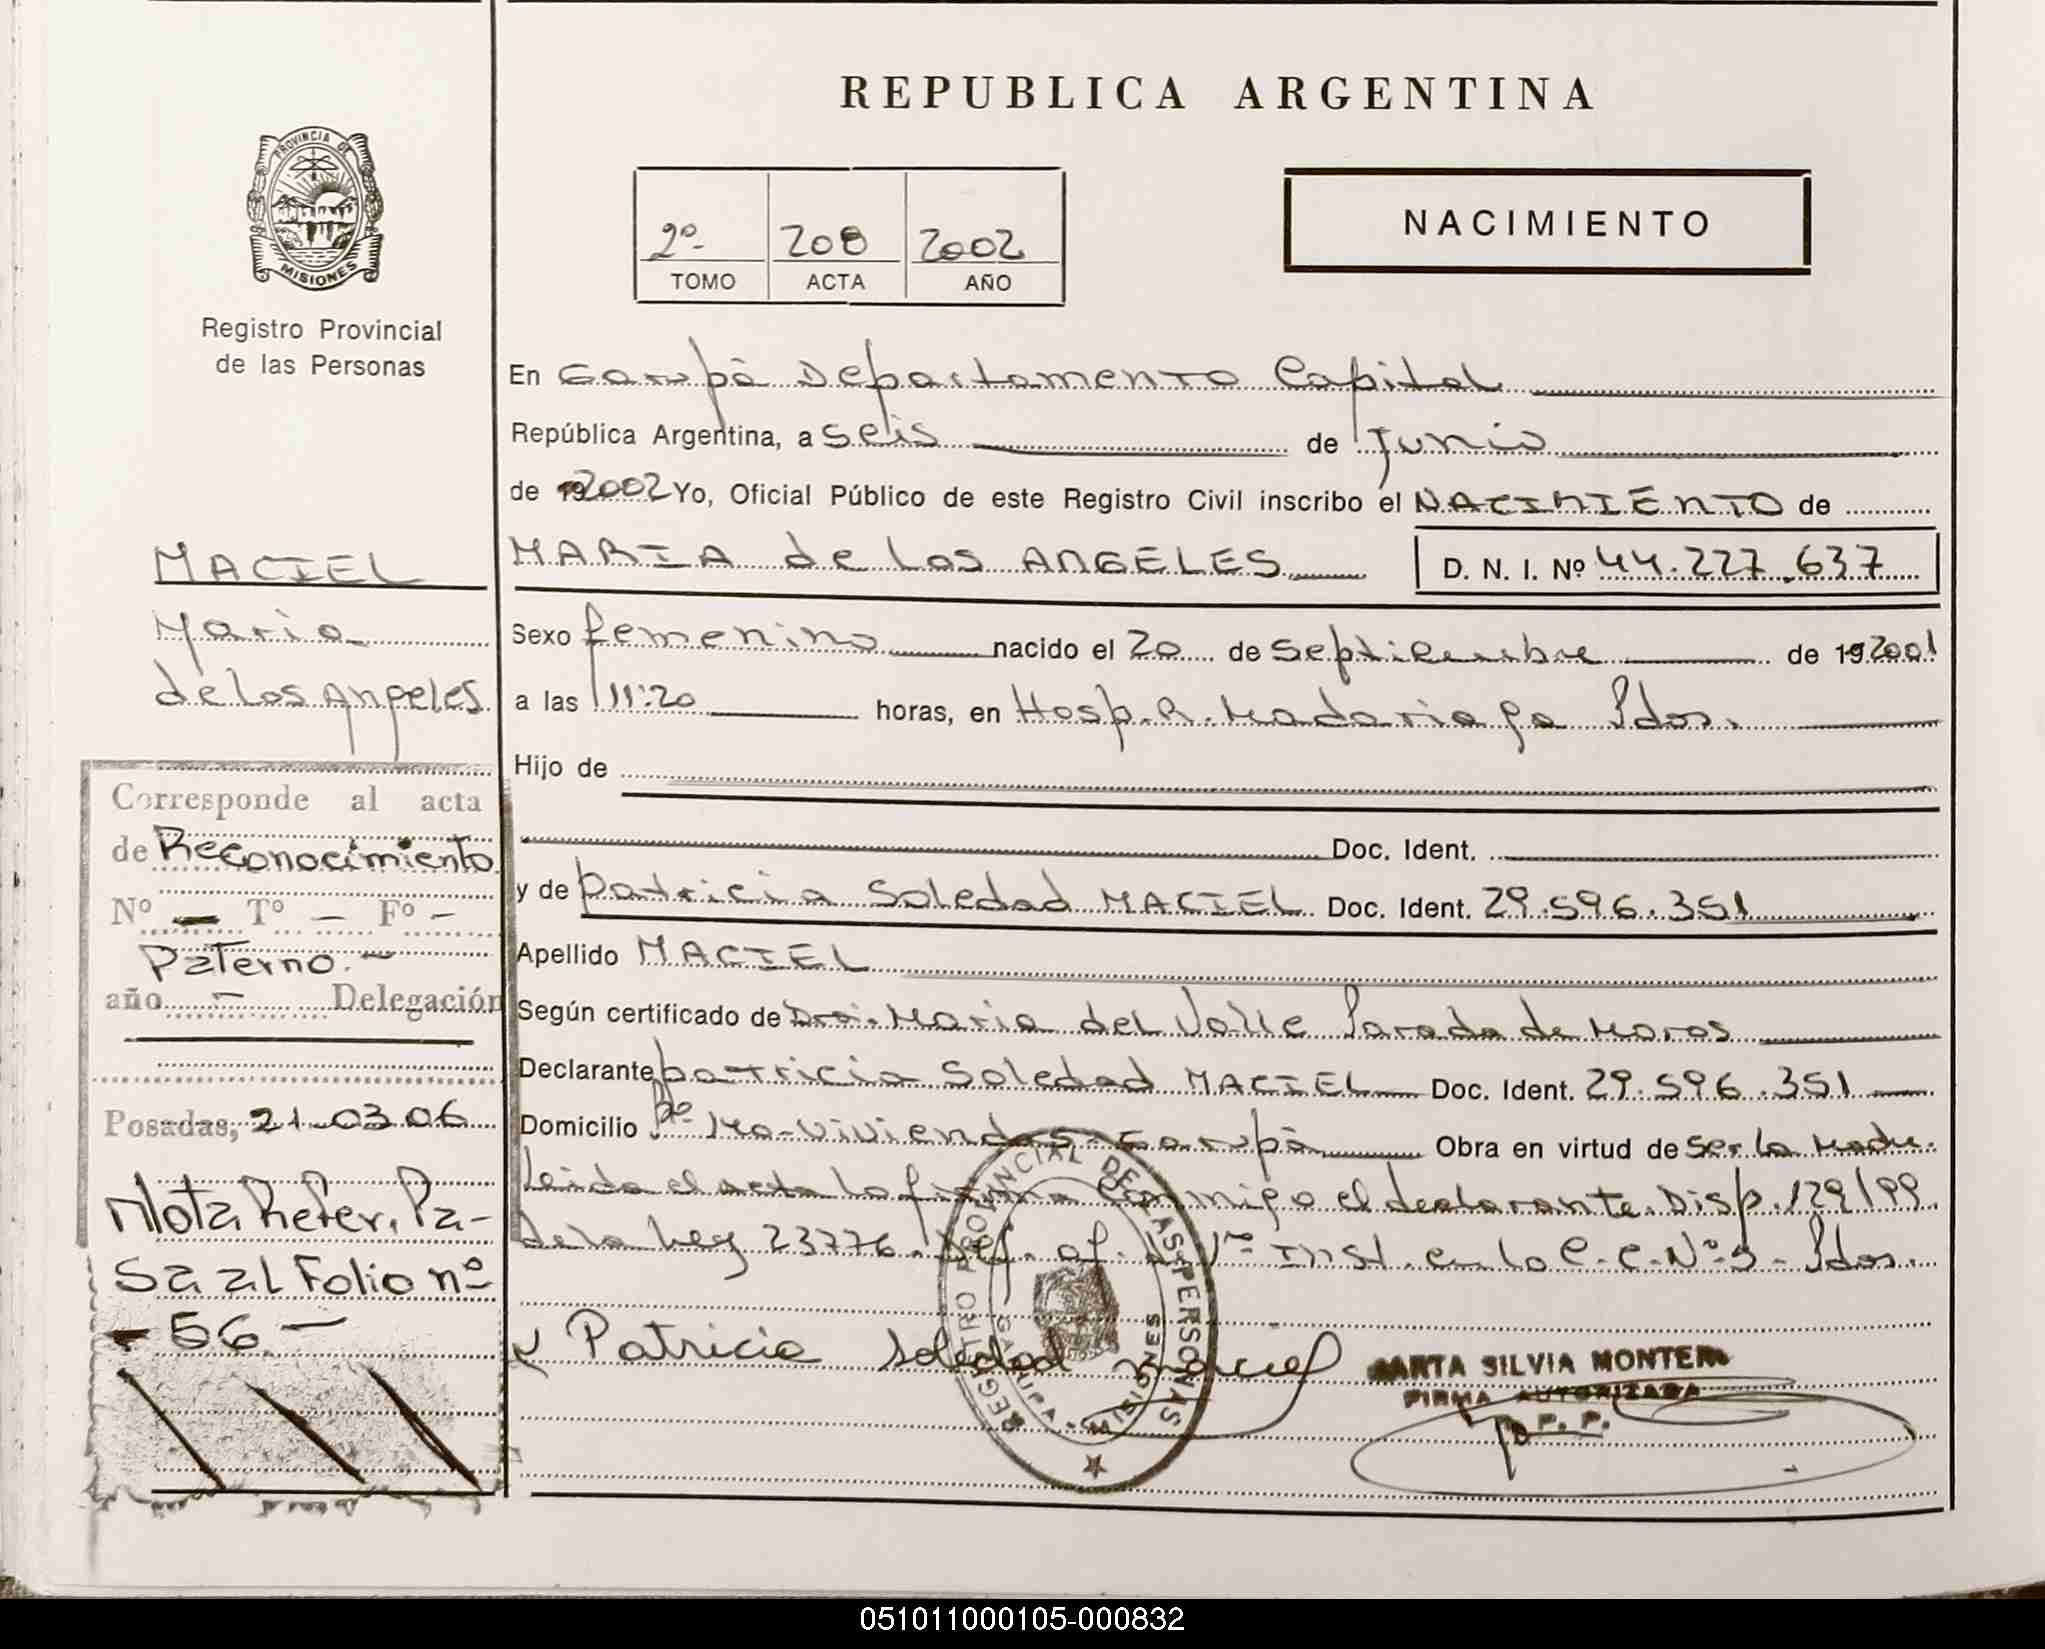 REPUBLICA ARGENTINA
PROVINCIA DE
MISIONES
Registro Provincial
de las Personas
2º- 208 2002
TOMO ACTA AÑO
NACIMIENTO
En Garupá Departamento Capital
República Argentina, a seis de Junio
de 192002 Yo, Oficial Público de este Registro Civil inscribo el NACIMIENTO de
MARIA de los ANGELES D. N. I. Nº 44.227.637
Sexo femenino nacido el 20 de Septiembre de 192001
a las 11:20 horas, en Hosp. R. Madariaga Pdas.
Hijo de
Doc. Ident.
y de Patricia Soledad MACIEL Doc. Ident. 29.596.351
Apellido MACIEL
Según certificado de Dra. Maria del Valle Parada de Moros
Declarante Patricia Soledad MACIEL Doc. Ident. 29.596.351
Domicilio Bº 140-viviendas-Garupá Obra en virtud de ser la Madre.
Leida el acta la firma conmigo el declarante. Disp. 129/99.
de la Ley 23776. Def. of. de 1ra Inst. en lo C.C. Nº 3 - Pdas.
Patricia Soledad Maciel
REGISTRO PROVINCIAL DE LAS PERSONAS
GARUPA - MISIONES
MARTA SILVIA MONTERO
FIRMA AUTORIZADA
R. P. P.
MACIEL
Maria
de los Angeles
Corresponde al acta
de Reconocimiento
Nº — Tº — Fº -
Paterno.-
año - Delegación
Posadas, 21-03-06
Nota Refer. Pa-
sa al Folio nº
- 56 -
051011000105-000832